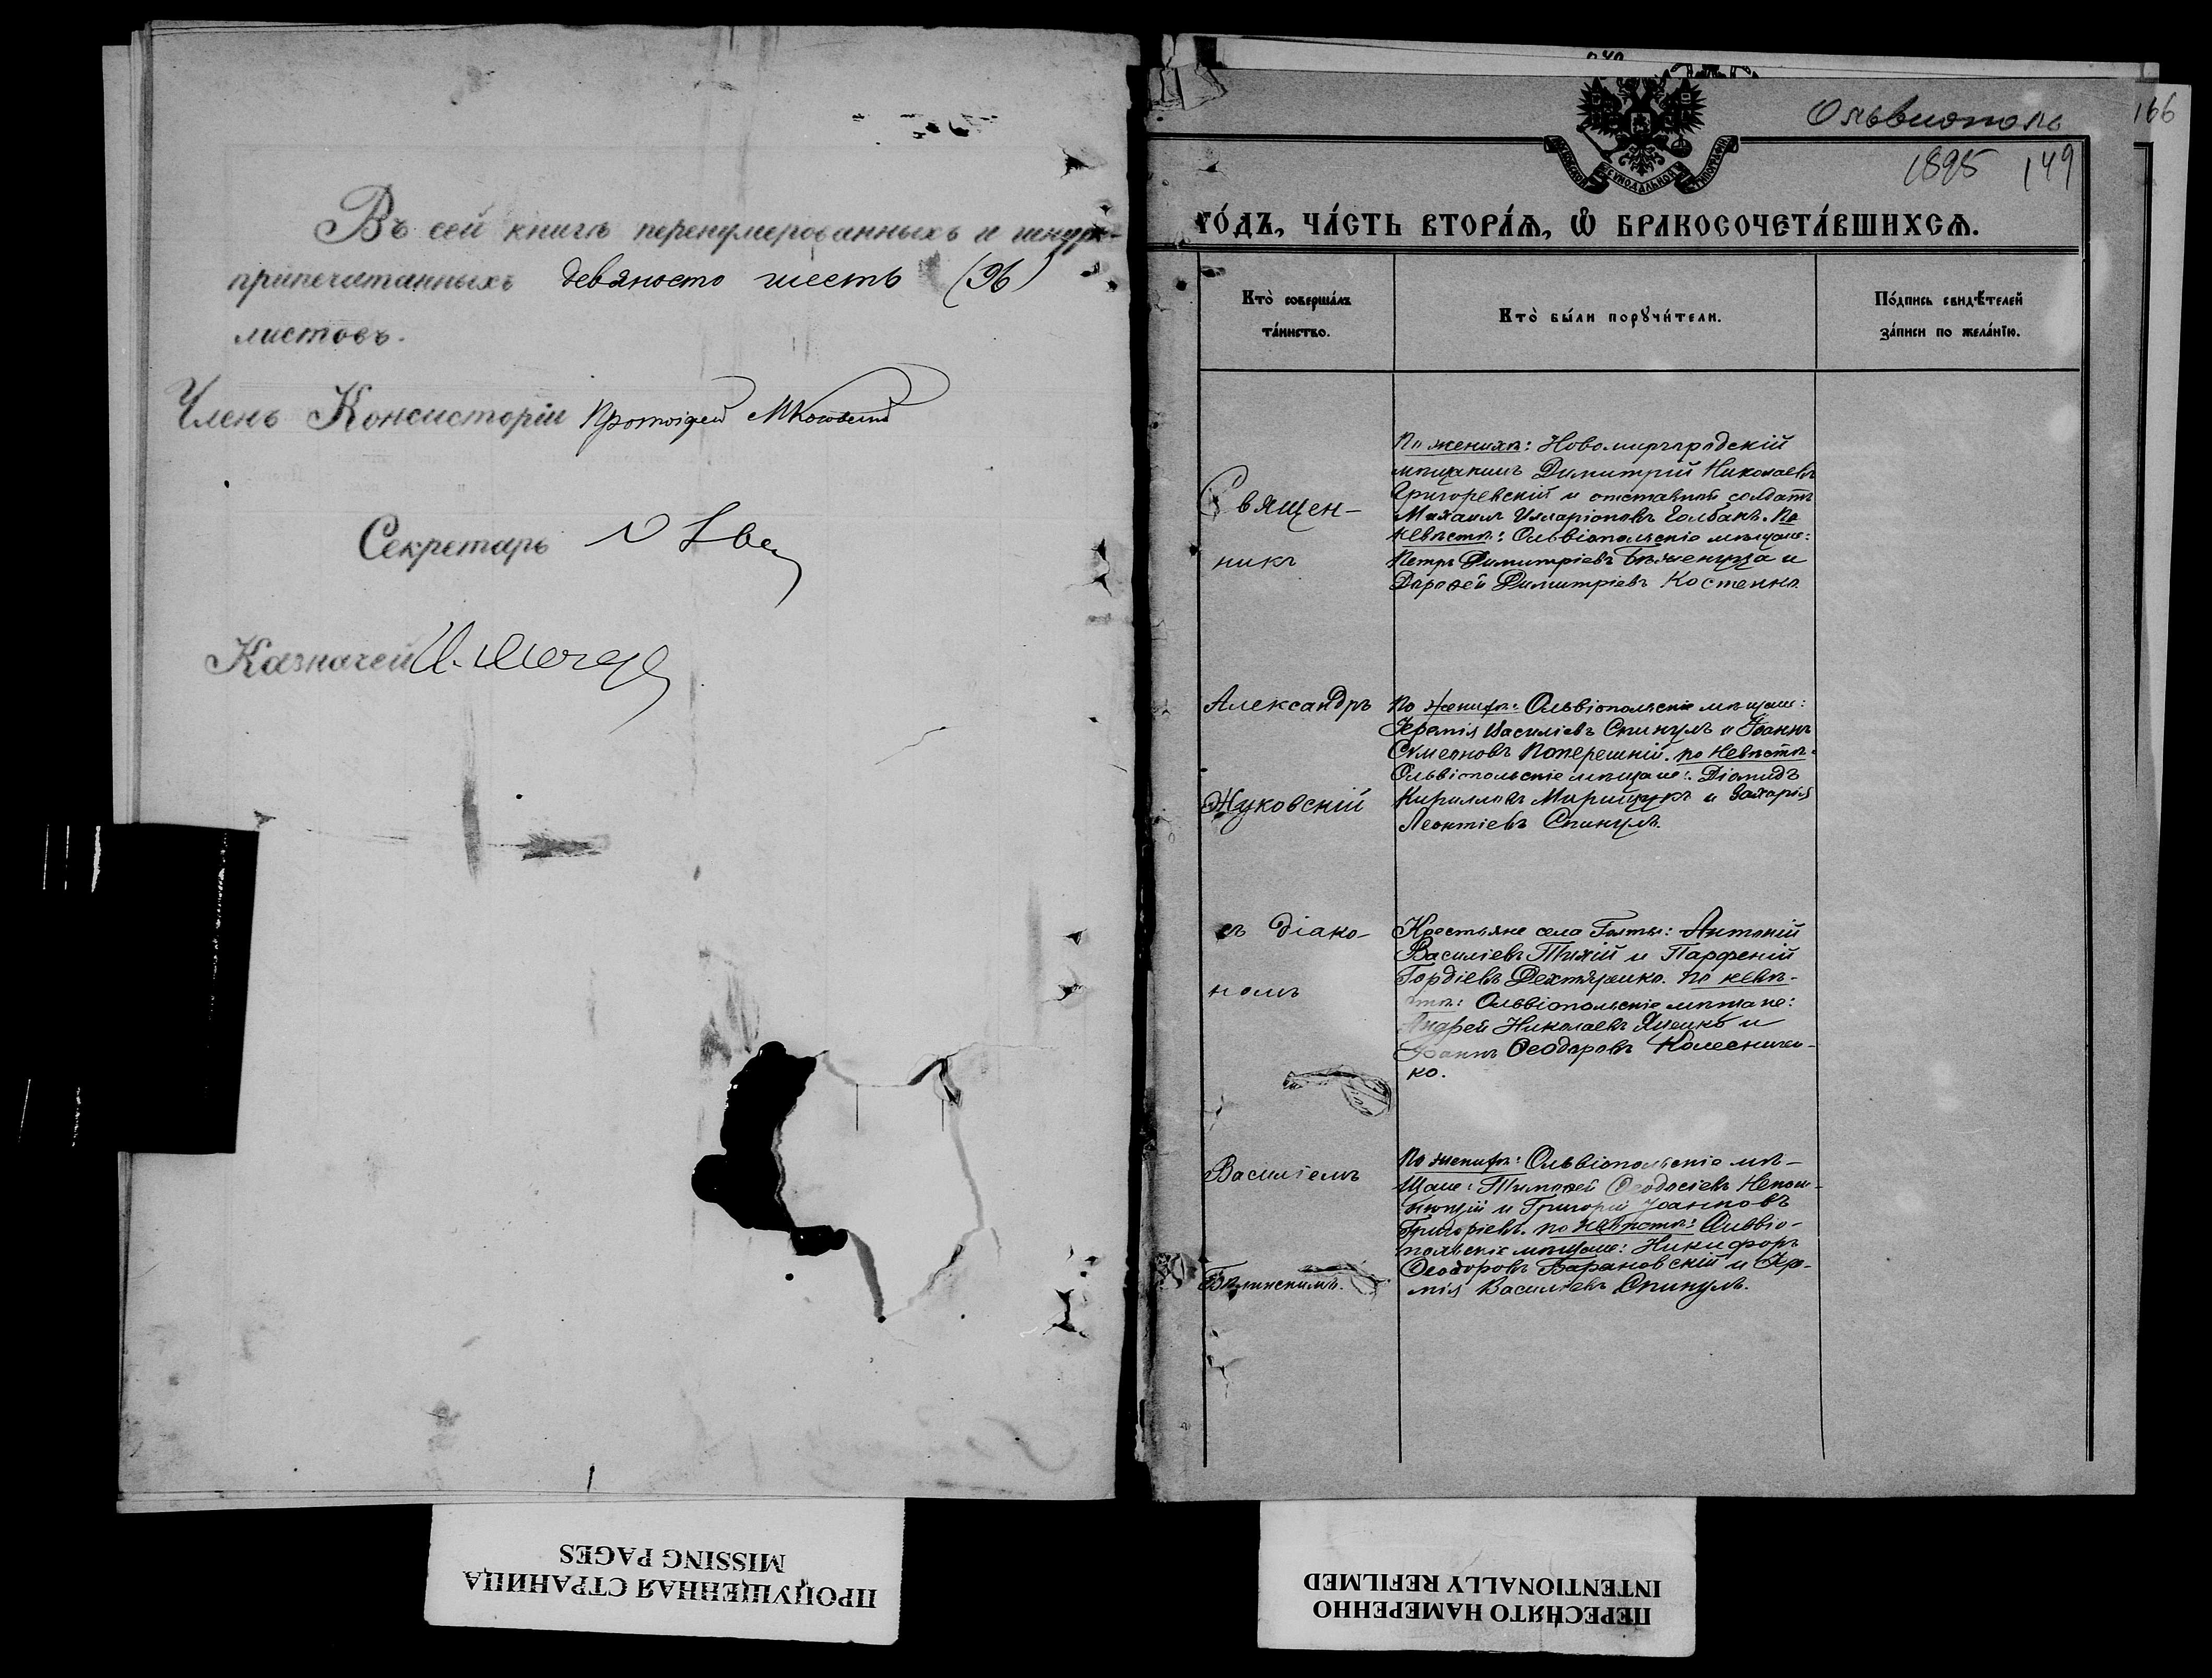 Въ сей книгѣ перенумерованныхъ и шнуро-
припечатанныхъ девяносто шесть (96)
листовъ.
Членъ Консисторіи Протоіерей
Секретарь
Казначей
Ольвиополь
166
1895 149
МОСКОВСКОЙ СѴНОДАЛЬНОЙ ТИПОГРАФІИ
го́дъ, ча́сть втора́ѧ, ѡ҆ бракосочета́вшихсѧ.
Кто̀ соверша́лъ
та́инство.
Кто̀ бы́ли порꙋчи́тели.
По́дпись свидѣ́телей
за́писи по жела́нїю.
Священ-
никъ
Александръ
Жуковскій
съ діако-
номъ
Василіемъ
Бѣлинскимъ.
По женихѣ: Новомиргородскій
мѣщанинъ Димитрій Николаевъ
Григоревскій и отставной солдатъ
Михаилъ Иларіоновъ Голбанъ. По
невѣстѣ: Ольвіопольскіе мѣщане:
Петръ Димитріевъ и
Дороѳей Димитріевъ Костенко.
По женихѣ: Ольвіопольскіе мѣщане:
Іеремія Василіевъ Спинулъ и Іоаннъ
Сѵмеоновъ Поперешній. по невѣстѣ:
Ольвіопольскіе мѣщане: Діомидъ
Кирилловъ Марищукъ и Захарія
Леонтіевъ Спинулъ.
Крестьяне села Голты: Антоній
Василіевъ Тихій и Парѳеній
Гордіевъ Дехтяренко. по невѣ-
стѣ: Ольвіопольскіе мѣщане:
Андрей Николаевъ Яценко и
Іоаннъ Ѳеодоровъ Колесничен-
ко.
По женихѣ: Ольвіопольскіе мѣ-
щане: Тимоѳей Ѳеодосіевъ
и Григорій Іоанновъ
Григоріевъ. по невѣстѣ: Ольвіо-
польскіе мѣщане: Никифоръ
Ѳеодоровъ Барановскій и Іере-
мія Василіевъ Спинулъ.
ПРОПУЩЕННАЯ СТРАНИЦА
MISSING PAGES
ПЕРЕСНЯТО НАМЕРЕННО
INTENTIONALLY REFILMED